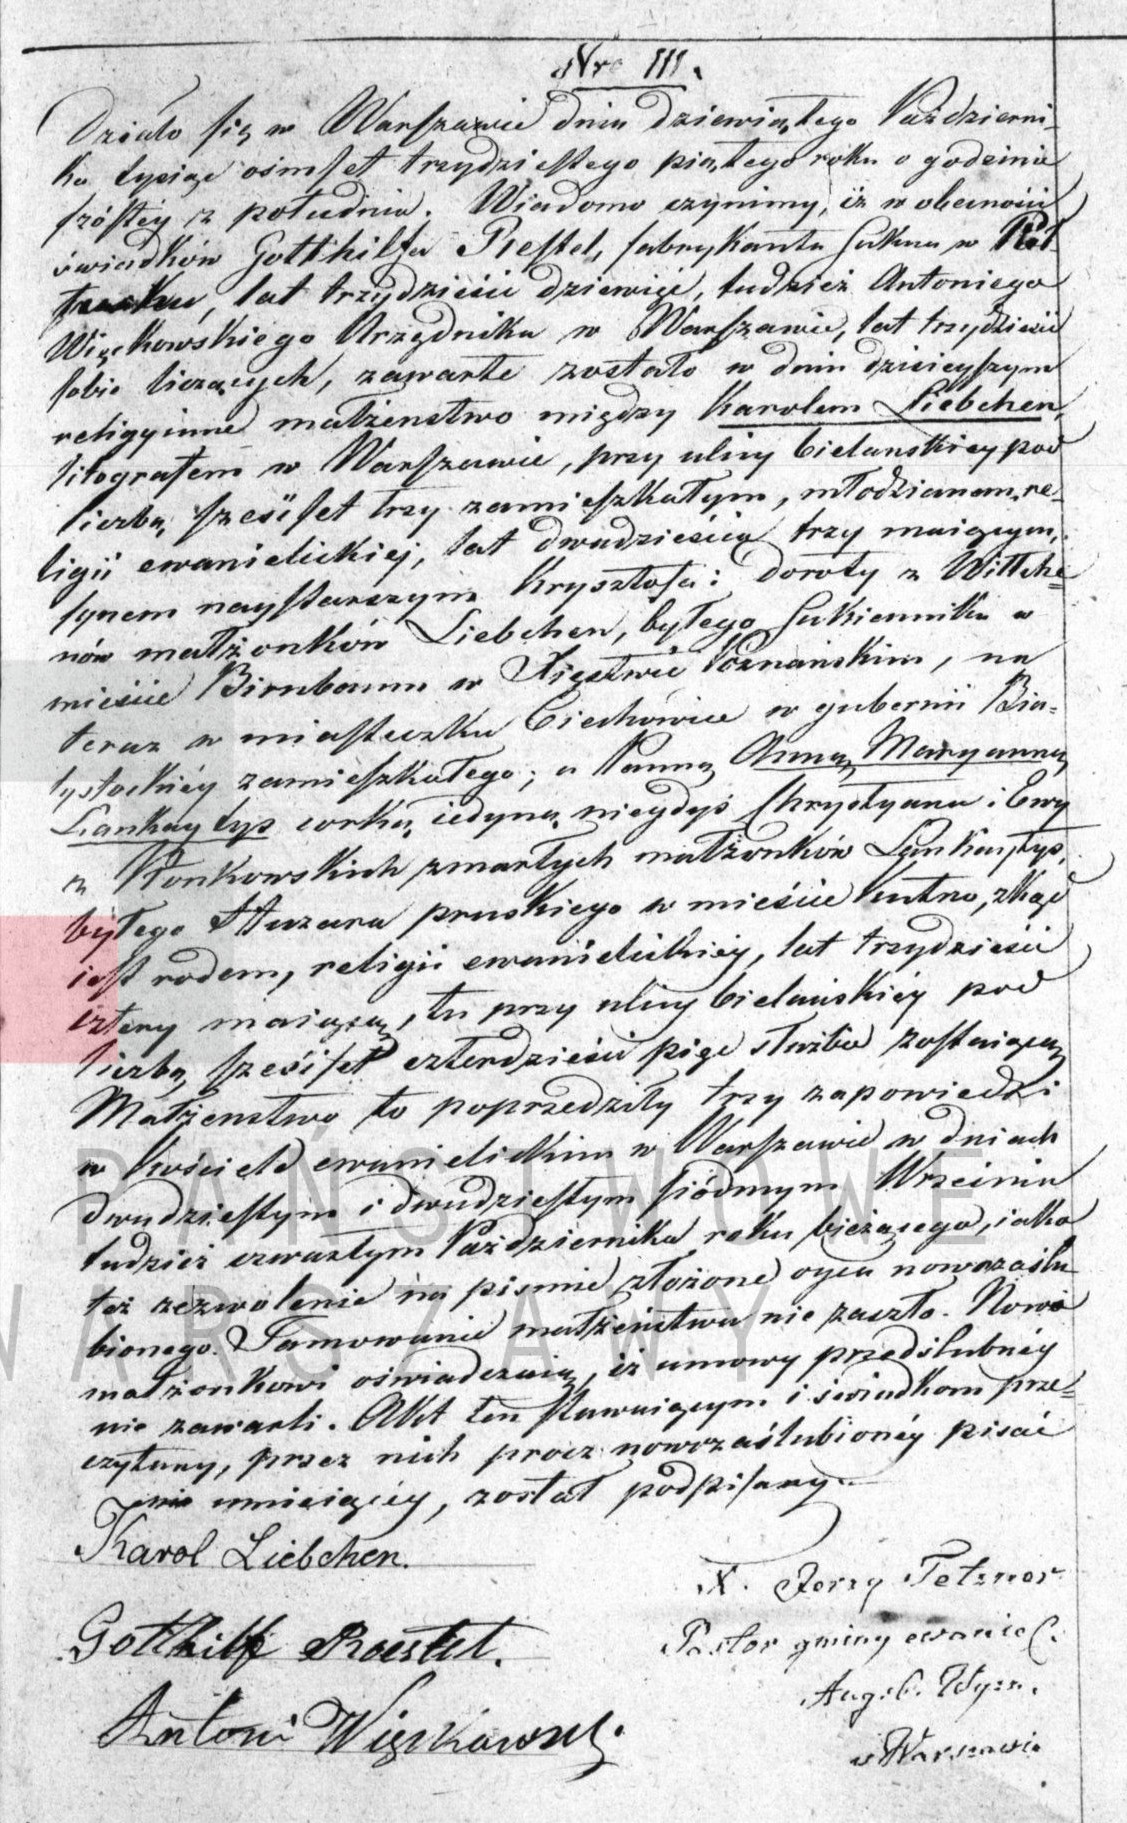 Nro 111.
Działo się w Warszawie dnia dziewiątego Październi-
ka tysiąc ośmset trzydziestego piątego roku o godzinie
szóstey z południa. Wiadomo czynimy, iż w obecności
świadków Gotthilfa Restel, fabrykanta sukna w
lat trzydzieści dziewięć, tudzież Antoniego
Więckowskiego Urzędnika w Warszawie, lat trzydzieści
sobie liczących, zawarte zostało w dniu dzisieyszym
religyinne małżenstwo między Karolem Liebchen,
litografem w Warszawie, przy ulicy bielanskiey pod
liczbą sześćset trzy zamieszkałym, młodzianem, re-
ligii ewanielickiej, lat dwadzieścia trzy maiącym,
synem naystarszym Krysztofa i Doroty z Wittche=
nów małżonków Liebchen, byłego Sukiennika w
mieście Birnbaum w Xięstwie Poznańskim, na
teraz w miasteczku Ciechówice w gubernii Bia=
łystockiéy zamieszkałego; a Panną Anną Maryanną
Lankaytys corką iedyną niegdyś Chrystyana i Ewy
z Konkowskich zmarłych małżonków Lankaytys,
byłego Huzara pruskiego w mieście Kutno, zkąd
iest rodem, religii ewanielickiéy, lat trzydzieści
cztery maiącą, tu przy ulicy bielańskiéy pod
liczbą sześćset czterdzieści pięć w służbie zostaiącą
Małżenstwo to poprzedziły trzy zapowiedzi
w kościele ewanielickim w Warszawie w dniach
dwudziestym i dwudziestym siódmym Wrześnie
tudzież czwartym Października roku bieżącego, iako
też zezwolenie na pismie złożone oyca nowozaślu
bionego. Tamowanie małżeństwa nie zaszło. Nowi
małżonkowi oświadczaią, iż umowy przedślubnéy
nie zawarli. Akt ten stawaiącym i świadkom prze=
czytany, przez nich procz nowozaślubionéy pisać
nie umieiącéy, został podpisany.
Karol Liebchen.
X. Jerzy Tetzner
Gotthilf Roestel.
Pastor gminy ewaniel.
Augsb. Wyzn.
Antoni Więckowski.
w Warszawie.
PAŃSTWOWE
WARSZAWY